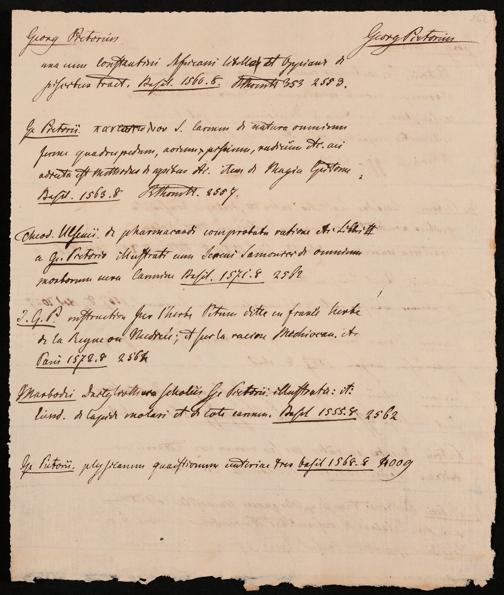 162
Georg Pictorius Georg Pictorius
una cum Constantini Africani libellis et Cypriani
tract. Basil. 1560. 8. 353 2553.
Ge Pictorii S. carmen de natura omnium
ferme quadrupedum, avium, piscium, radicum etc. cui
est Methodus etc. item de Magia
Basil. 1563. 8 2557.
Theod. Ulsenii. de pharmacandi comprobata ratione etc. Libri II
a Ge. Pictorio illustrati cum Sereni Samonici de omnium
morborum cura Carmine Basil. 1571. 8 2562
J. G. P. instruction sur l'herbe Petum ditte en france herbe
de la Reyne ou Medicée; et sur la racine Mechiocan. etc
Paris 1572. 8 2564
Marbodei Scholiis Ge Pictorii illustrata: et
eiusd. de lapide molari et de Cote carmen. Basil 1555. 8 2562
Ge Pictorii. physicarum quaestionum centuriae tres basil 1568. 8 4009